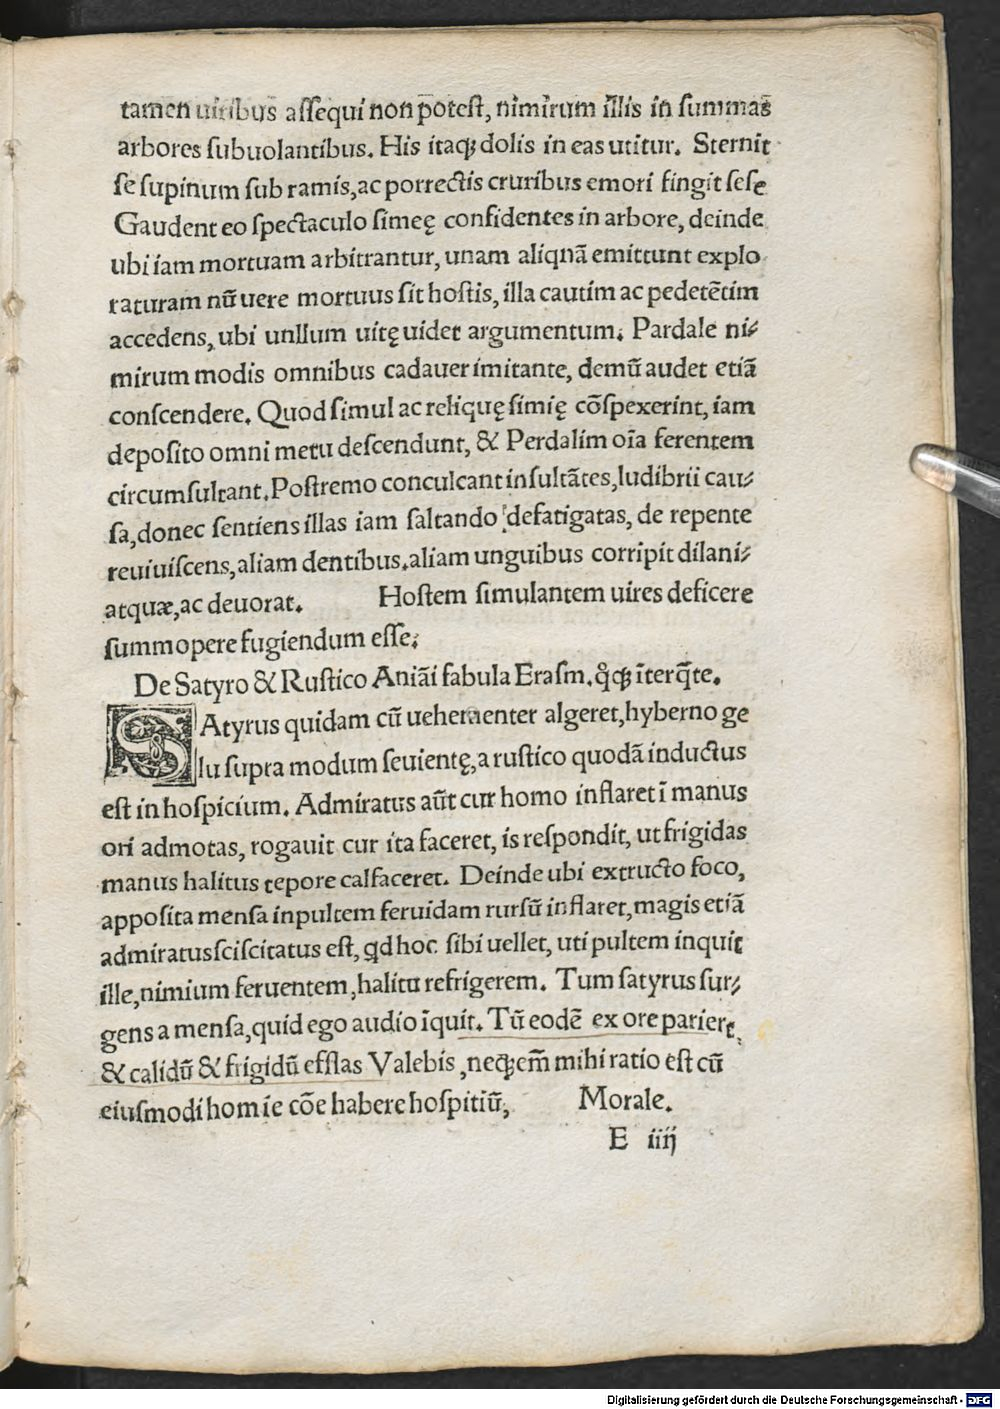 tamen uiribus assequi non p̄otest, nimirum illis in summas
arbores subuolantibus. His itaqꝫ dolis in eas utitur. Sternit
se supinum sub ramis, ac porrectis cruribus emori fingit sese
Gaudent eo spectaculo simeę confidentes in arbore, deinde
ubi iam mortuam arbitrantur, unam aliqnā emittunt explo
raturam nū uere mortuus sit hostis, illa cautim ac pedetētim
accedens, ubi unllum uitę uidet argumentum. Pardale ni⸗
mirum modis omnibus cadauer imitante, demū audet etiā
conscendere. Quod simul ac reliquę simię cōspexerint, iam
deposito omni metu descendunt, & Perdalim oīa ferentem
circumsultant. Postremo conculcant insultātes, ludibrii cau⸗
sa, donec sentiens illas iam saltando defatigatas, de repente
reuiuiscens, aliam dentibus. aliam unguibus corripit dilani⸗
atquæ, ac deuorat. Hostem simulantem uires deficere
summopere fugiendum esse.
De Satyro & Rustico Aniāi fabula Erasm. q̊qꝫ īterq̄te.
SAtyrus quidam cū uehementer algeret, hyberno ge
lu supra modum seuientę, a rustico quodā inductus
est in hospicium. Admiratus aūt cur homo inflaret ī manus
ori admotas, rogauit cur ita faceret, is respondit, ut frigidas
manus halitus tepore calfaceret. Deinde ubi extructo foco,
apposita mensa inpultem feruidam rursū inflaret, magis etiā
admiratus sciscitatus est, qd hoc sibi uellet, uti pultem inquit
ille, nimium feruentem, halitu refrigerem. Tum satyrus sur⸗
gens a mensa, quid ego audio īquit. Tū eodē ex ore pariere
& calidū & frigidū efflas Valebis, neqꝫ em̄ mihi ratio est cū
eiusmodi homīe cōe habere hospitiū, Morale.
E iiij
Digitalisierung gefördert durch die Deutsche Forschungsgemeinschaft - DFG